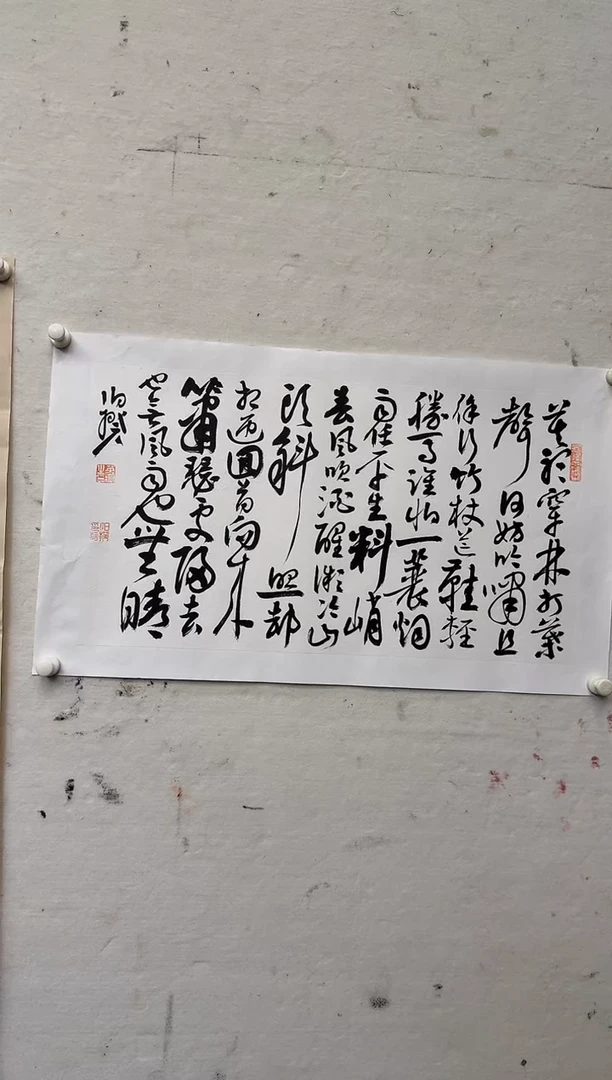 莫聽穿林打葉
聲何妨吟嘯且
徐行竹杖芒鞋輕
勝馬誰怕一蓑烟
雨任平生料峭
春風吹酒醒微冷山
頭斜照却
相迎回首向来
蕭瑟處歸去
也無風雨也無晴